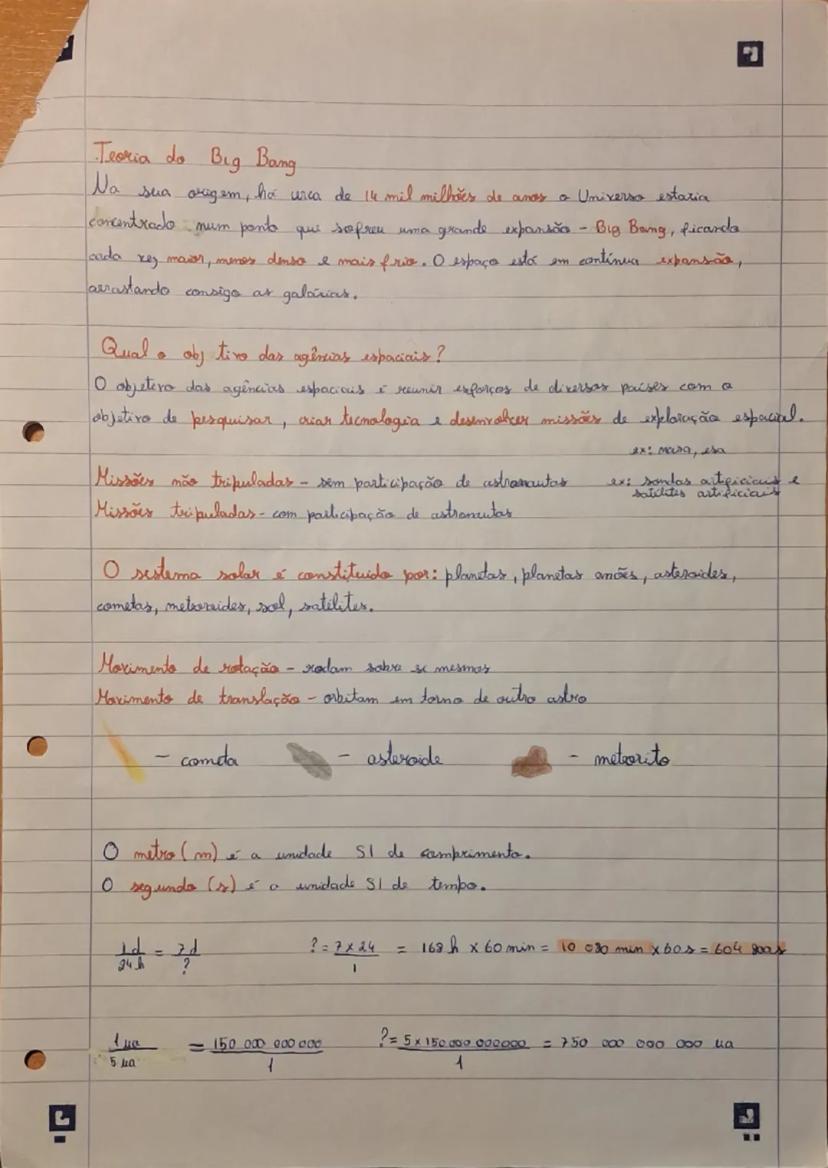 Teoria do Big Bang
Na sua origem, há cerca de 14 mil milhões de anos o Universo estaria
concentrado num ponto que sofreu uma grande expansão - Big Bang, ficando
cada vez maior, menos denso e mais frio. O espaço está em contínua expansão,
arrastando consigo as galáxias.
Qual o obj tivo das agências espaciais?
O objetivo das agências espaciais é reunir esforços de diversos países com o
objetivo de pesquisar, criar tecnologia e desenvolver missões de exploração espacial.
ex: nasa, esa
Missões não tripuladas - sem participação de astronautas ex: sondas artificiais e
satélites artificiais
Missões tripuladas - com participação de astronautas
O sistema solar é constituído por: planetas, planetas anões, asteroides,
cometas, meteoroides, sol, satélites.
Movimento de rotação - rodam sobre si mesmos
Movimento de translação - orbitam em torno de outro astro
- cometa - asteroide - meteorito
O metro (m) é a unidade SI de comprimento.
O segundo (s) é a unidade SI de tempo.
1d = 7d ? = 7 x 24 = 168 h x 60 min = 10 080 min x 60 s = 604 800 s
24h ? 1
1 ua = 150 000 000 000 ? = 5 x 150 000 000 000 = 750 000 000 000 ua
5 ua 1 1